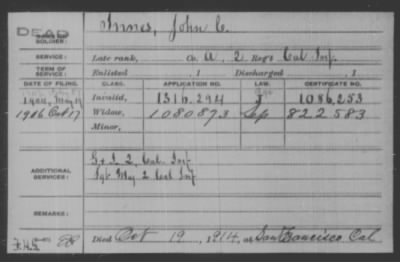 DEAD
SOLDIER: Innes, John C.
SERVICE: Late rank, Co. A, 2 Reg't Cal. Inf.
TERM OF SERVICE: Enlisted , 1 Discharged , 1
DATE OF FILING. CLASS. APPLICATION NO. LAW. CERTIFICATE NO.
1904, May 19 Invalid, 1316.294 1086.253
1916 Oct 17 Widow, 1080873 822583
Minor,
ADDITIONAL SERVICES: G & I. 2, Cal. Inf.
Sgt Maj 2 Cal Inf
REMARKS:
Died Oct 19, 1914, at San Francisco Cal